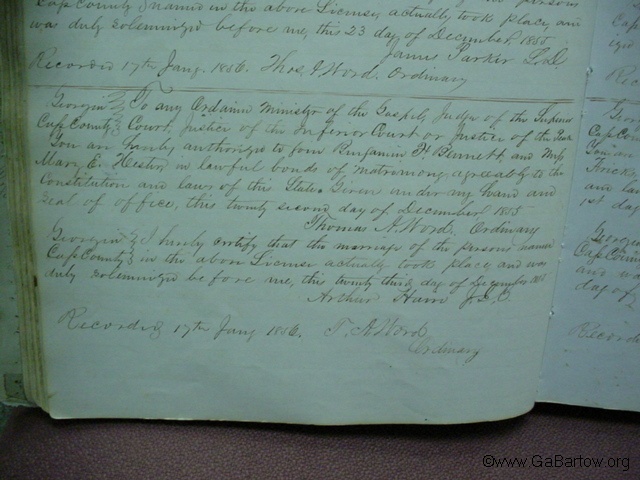 Cass County} named in the above License, actually took place, and
was duly solemnized before me, this 23 day of December, 1855.
James Parker
Recorded 17th Jany. 1856. Thos. A Word, Ordinary
Georgia } To any Ordained Minister of the Gospel, Judge of the Superior
Cass County } Court, Justice of the Inferior Court or Justice of the Peace
You are hereby authorized to join Benjamin H Bennett and Miss
Mary E. Hester, in lawful bonds of matrimony, agreeably to the
Constitution and laws of this State. Given under my hand and
seal of office, this twenty second day of December 1855
Thomas A. Word, Ordinary
Georgia } I hereby certify that the marriage of the persons named
Cass County } in the above License actually took place, and was
duly solemnized before me, this twenty third day of December 1855
Arthur
Recorded 17th Jany 1856. T. A. Word
Ordinary
©www.GaBartow.org